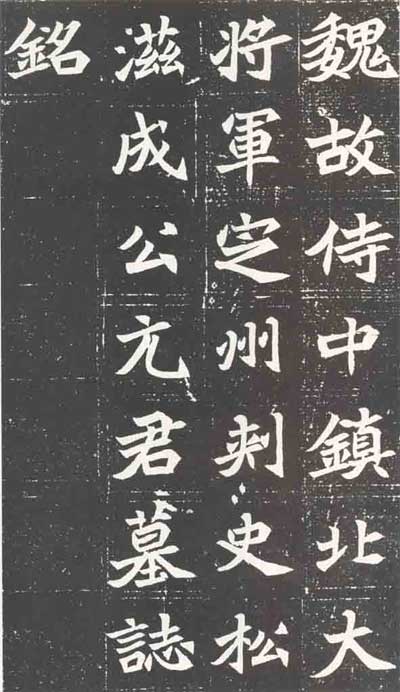 魏故侍中鎮北大
将軍定州刾史松
滋成公元君墓誌
銘